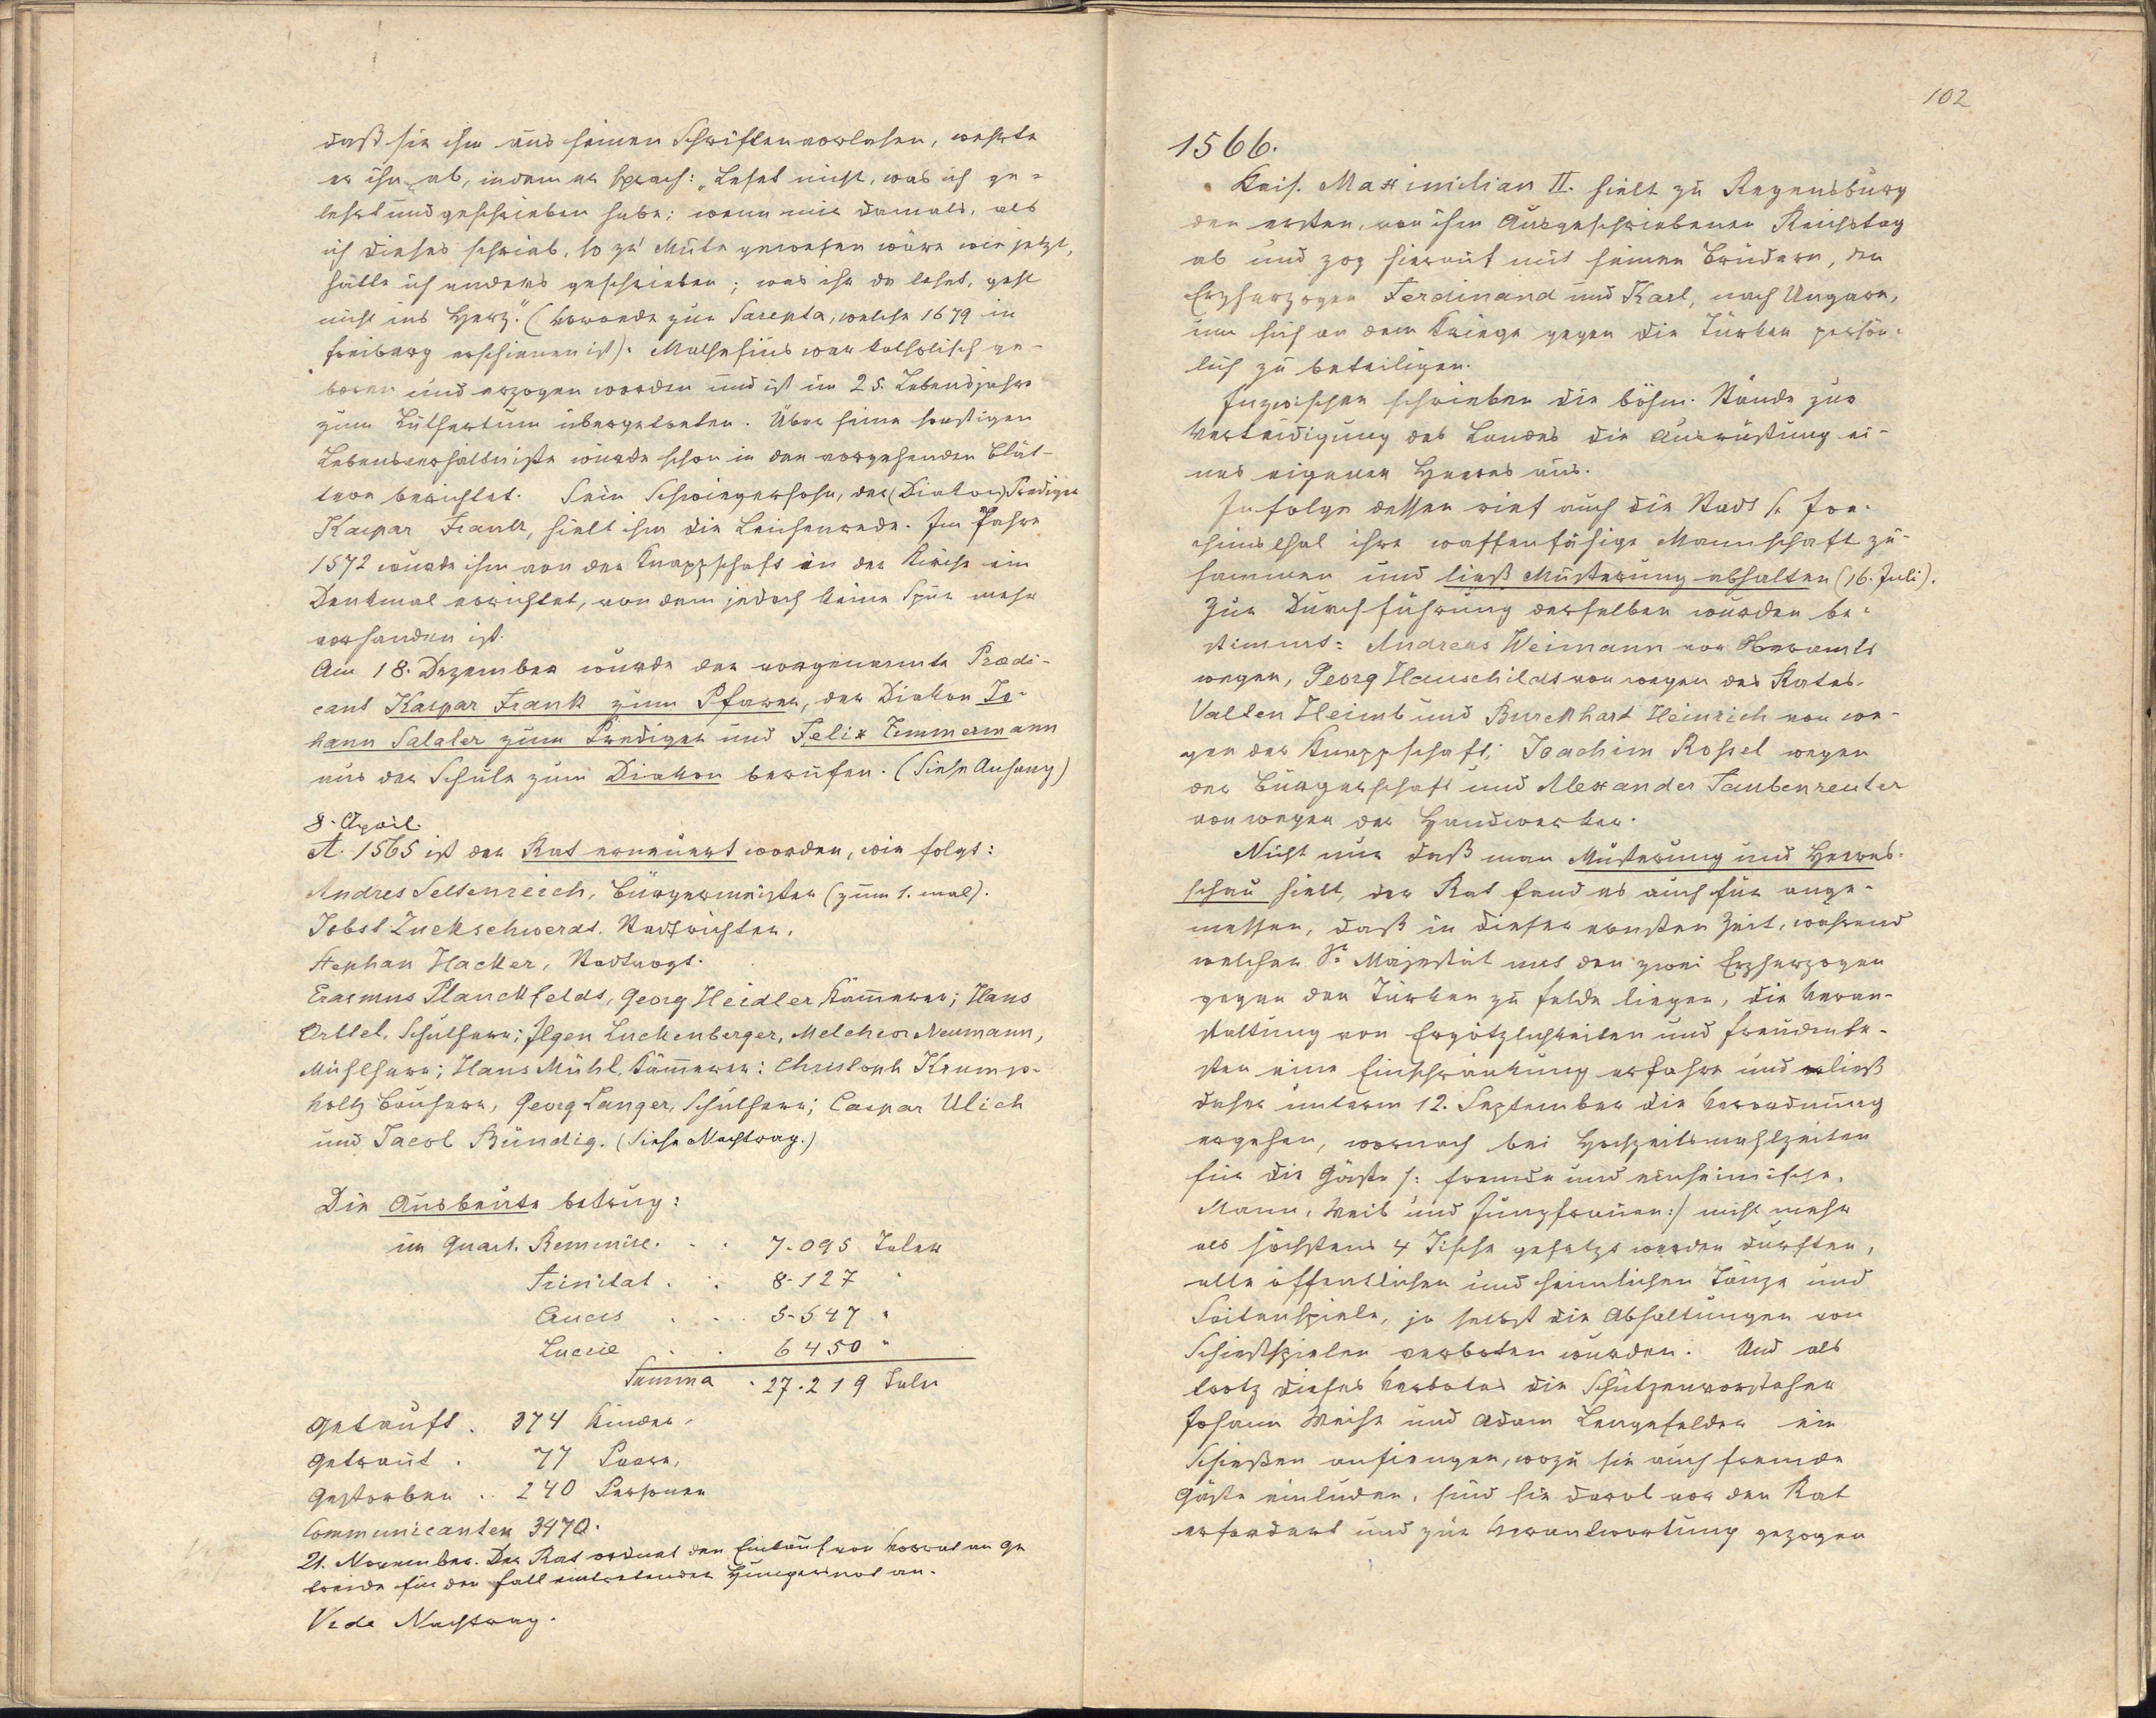 daß sie ihm aus seinen Schriften vorlasen, wehrte
er ihn ab, indem er sprach: „Leset nicht, was ich ge-
lehrt und geschrieben habe; wenn mir damals, als
ich dieses schrieb, so zu Mute gewesen wäre wie jetzt,
hätte ich anders geschrieben; was ihr da leset, geht
nicht ins Herz." (Vorrede zur Sarepta, welche 1679 in
Freiberg erschienen ist). Mathesius war katholisch ge-
boren und erzogen worden und ist im 25. Lebensjahre
zum Luthertum übergetreten. Über seine sonstigen
Lebensverhältniße wurde schon in den vorgehenden Blät-
tern berichtet. Sein Schwiegersohn, der (Diakon) Prediger
Kaspar Frank, hielt ihm die Leichenrede. Im Jahre
1572 wurde ihm von der Knappschaft in der Kirche ein
Denkmal errichtet, von dem jedoch keine Spur mehr
vorhanden ist.
Am 18. Dezember wurde der vorgenannte Prædi-
cant Kaspar Frank zum Pfarrer, der Diakon Jo-
hann Salaler zum Prediger und Felix Zimmermann
aus der Schule zum Diakon berufen. (Siehe Anhang)
8. April.
A. 1565 ist der Rat erneuert worden, wie folgt:
Andres Seltenreich, Bürgermeister (zum 1. mal).
Jobst Zuckschwerdt. Stadtrichter.
Stephan Hacker, Stadtvogt.
Erasmus Planckfeldt, Georg Heidler Kam̄erer; Hans
Orttel, Schulherr; Ilgen Luckenberger, Melchior Neumann,
Mühlherr; Hans Mühl, Käm̄erer; Christoph Krump-
holtz Bauherr, Georg Langer, Schulherr; Caspar Ulich
und Jacob Bündig. (Siehe Nachtrag.)
Die Ausbeute betrug:
im Quart. Reminisc. . . 7.095 Taler
Trinitat . . 8.127 "
Crucis . . . 5.547 "
Lucie . . 6450 "
Summa . 27.219 Taler
Getauft . 374 Kinder.
Getraut . 77 Paare,
Gestorben .. 240 Personen
Communicanten 3470.
21. November. Der Rat ordnet den Einkauf von Vorrat an Ge
treide für den Fall eintretender Hungersnot an.
Vide Nachtrag.
102
1566.
Kais. Maximilian II. hielt zu Regensburg
den ersten, von ihm ausgeschriebenen Reichstag
ab und zog hierauf mit seinen Brüdern, den
Erzherzogen Ferdinand und Karl, nach Ungarn,
um sich an dem Kriege gegen die Türken persön-
lich zu beteiligen.
Inzwischen schrieben die böhm. Stände zur
Verteidigung des Landes die Ausrüstung ei-
nes eigenen Heeres aus.
Infolge dessen rief auch die Stadt St. Joa-
chimsthal ihre waffenfähige Mannschaft zu-
sammen und ließ Musterung abhalten (16. Juli).
Zur Durchführung derselben wurden be-
stimmt: Andreas Weimann von Oberamts
wegen, Georg Hauschildt von wegen des Rates.
Valten Heimb und Burckhart Heinrich von we-
gen der Knappschaft; Joachim Rossel wegen
der Bürgerschaft und Alexander Taubenreuter
von wegen der Handwerker.
Nicht nur daß man Musterung und Heeres-
schau hielt, der Rat fand es auch für ange-
messen, daß in dieser ernsten Zeit, während
welcher Sr. Majestät mit den zwei Erzherzogen
gegen den Türken zu Felde liegen, die Veran-
staltung von Ergötzlichkeiten und Freudenfe-
sten eine Einschränkung erfahre und ließ
daher unterm 12. September die Verordnung
ergehen, wornach bei Hochzeitsmahlzeiten
für die Gäste /: fremde und einheimische,
Mann, Weib und Jungfrauen:/ nicht mehr
als höchstens 4 Tische gesetzt werden durften,
alle öffentlichen und heimlichen Tänze und
Saitenspiele, ja selbst die Abhaltungen von
Schießspielen verboten wurden. Und als
trotz dieses Verbotes die Schützenvorsteher
Johann Weihe und Adam Lengefelder ein
Schießen anfiengen, wozu sie auch fremde
Gäste einluden, sind sie darob vor den Rat
erfordert und zur Verantwortung gezogen